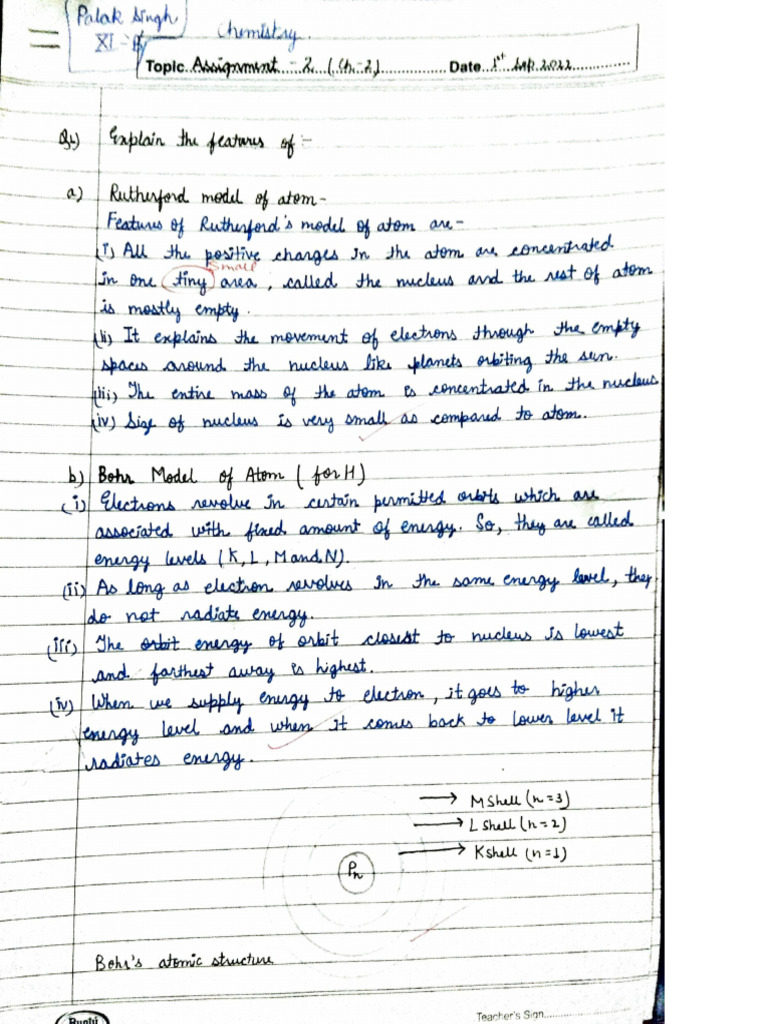 Palak Singh
XI - B
Chemistry.
Topic Assignment - 2 (Ch-2) Date 1st Sep. 2022
Q1) Explain the features of :-
a) Rutherford model of atom -
Features of Rutherford's model of atom are -
(i) All the positive charges in the atom are concentrated
small
in one tiny area, called the nucleus and the rest of atom
is mostly empty.
(ii) It explains the movement of electrons through the empty
spaces around the nucleus like planets orbiting the sun.
(iii) The entire mass of the atom is concentrated in the nucleus
(iv) Size of nucleus is very small as compared to atom.
b) Bohr Model of Atom ( for H)
(i) Electrons revolve in certain permitted orbits which are
associated with fixed amount of energy. So, they are called
energy levels (K, L, M and N).
(ii) As long as electron revolves in the same energy level, they
do not radiate energy.
(iii) The orbit energy of orbit closest to nucleus is lowest
and farthest away is highest.
(iv) When we supply energy to electron, it goes to higher
energy level and when it comes back to lower level it
radiates energy.
M Shell (n=3)
L Shell (n=2)
K Shell (n=1)
Pn
Bohr's atomic structure
Teacher's Sign.